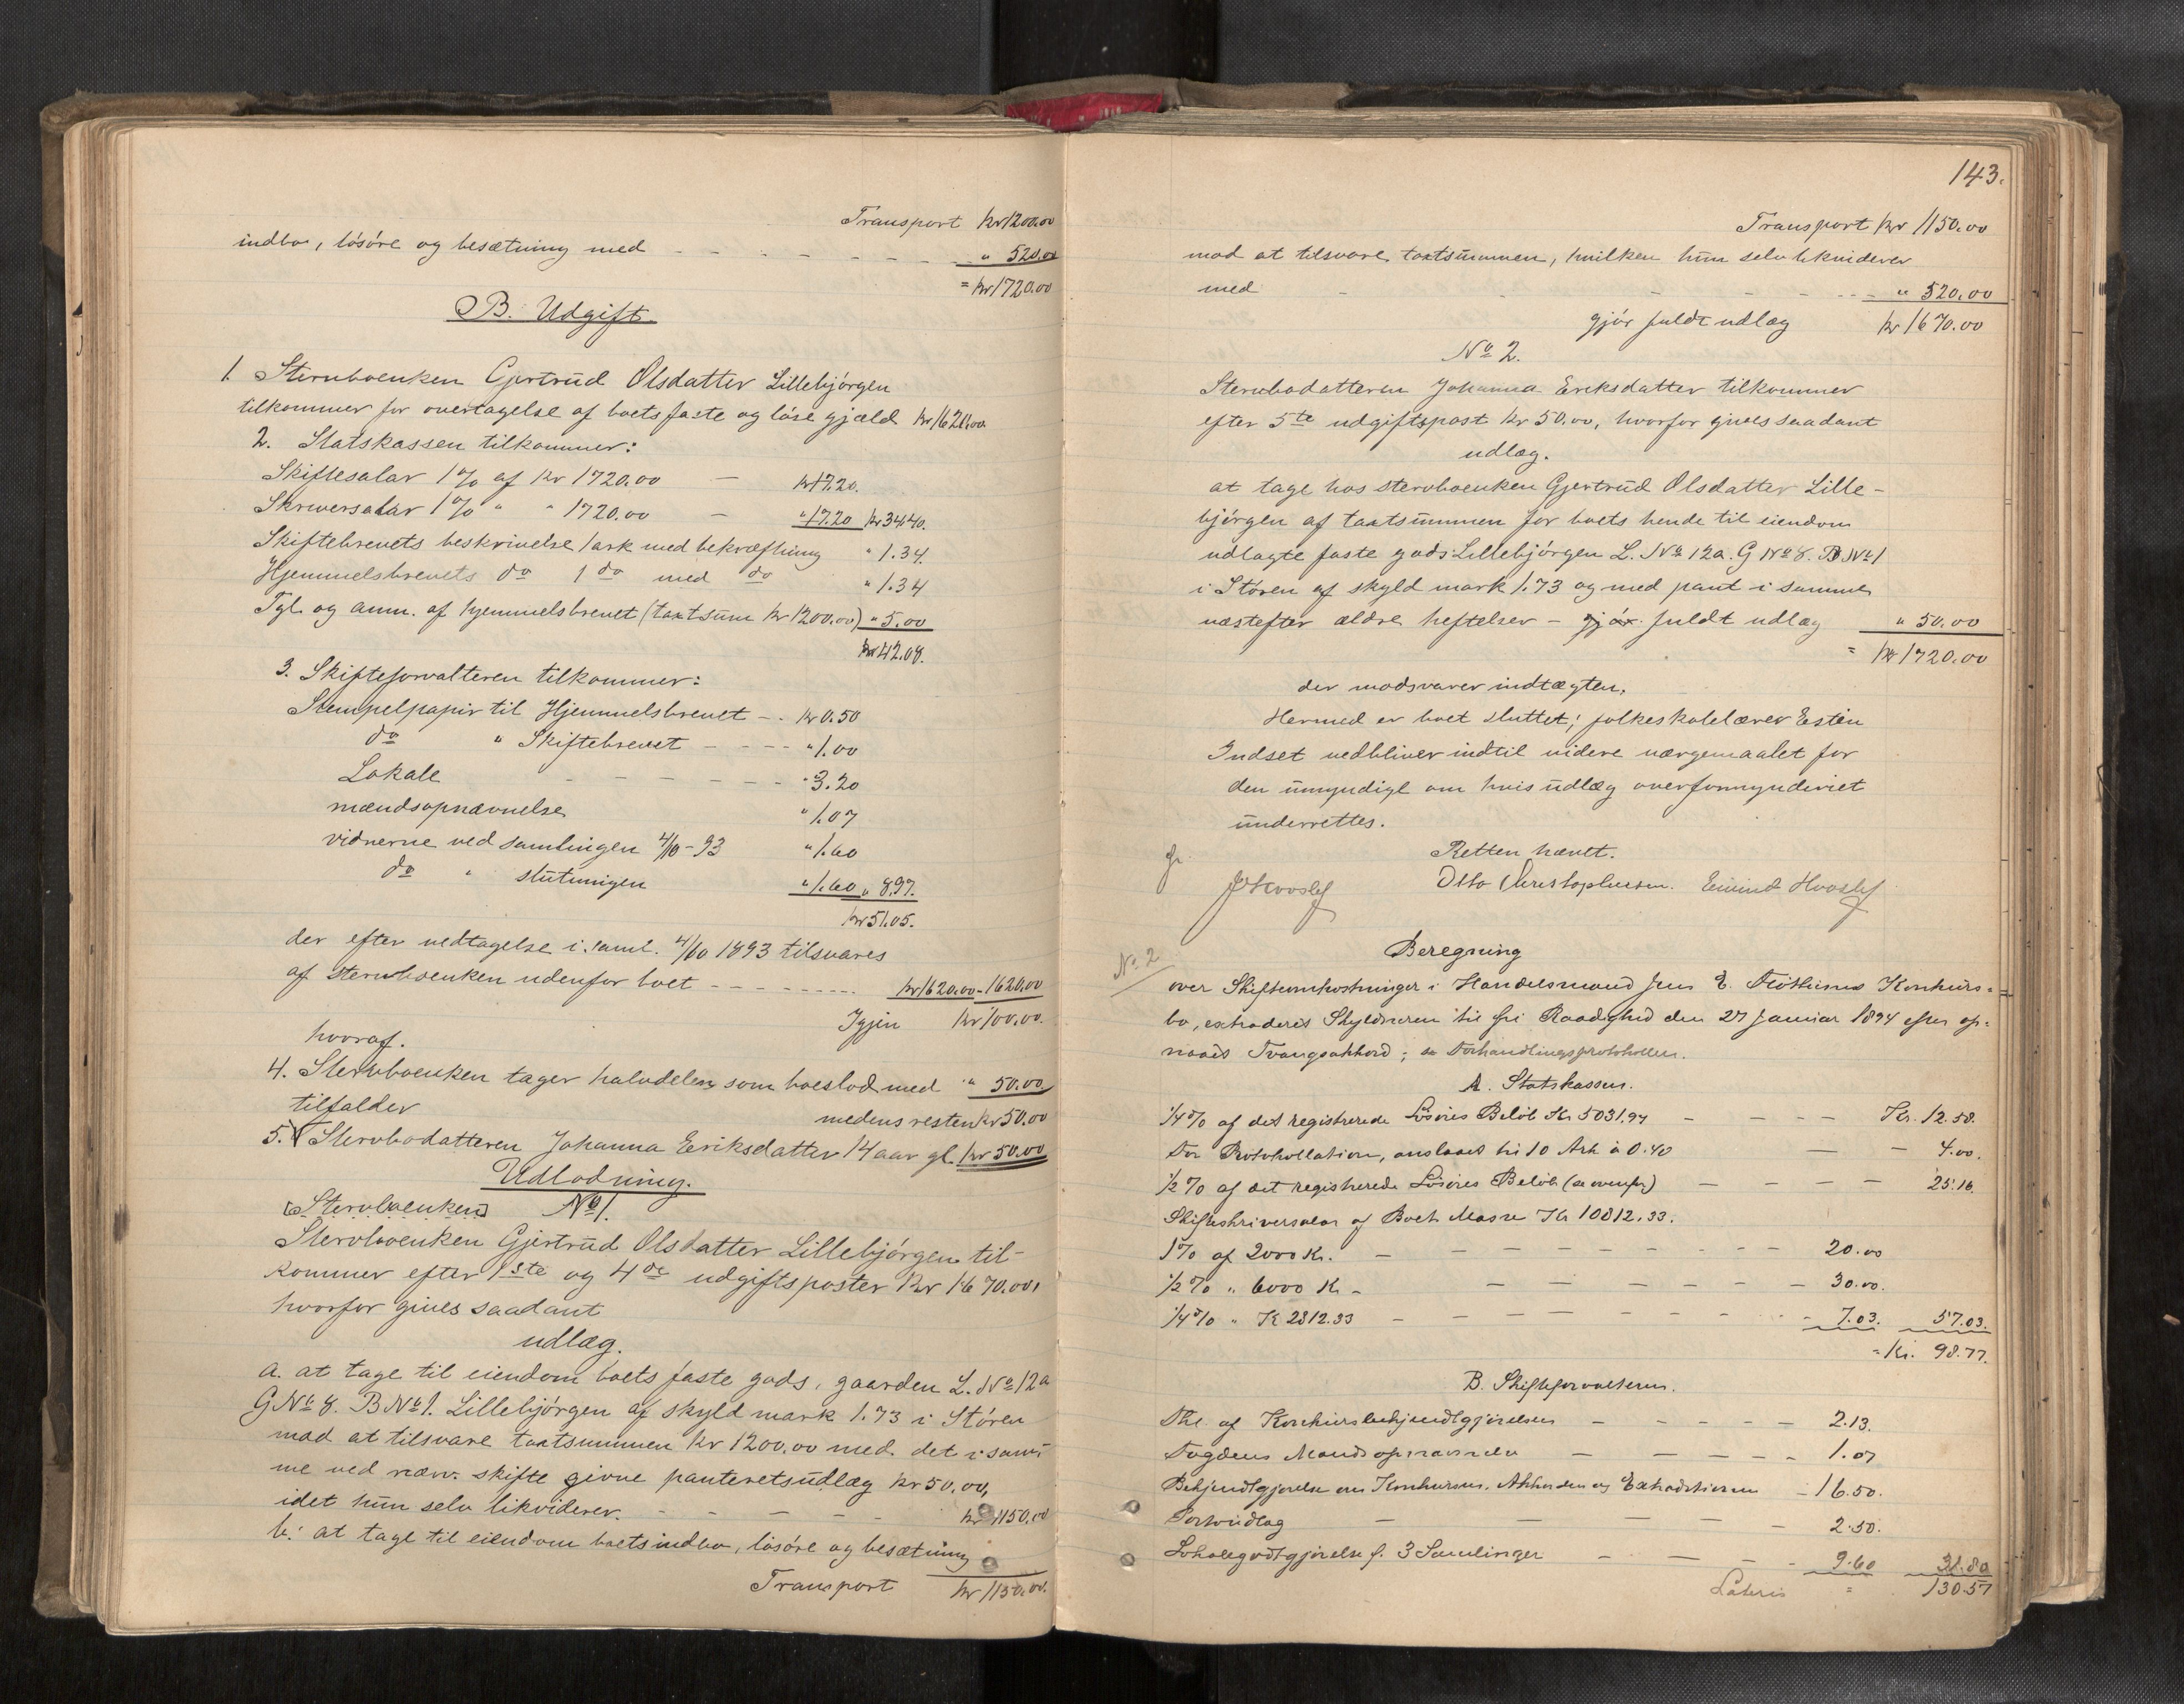 Transport kr 1200.00
indbo, løsøre og besætning med - - - - - - - " 520.00
= kr 1720.00
B. Udgift
1. Stervboenken Gjertrud Olsdatter Lillebjørgen
tilkommer for overtagelse af boets faste og løse gjæld kr 1620.00
2. Statskassen tilkommer:
Skiftesalar 1 % af kr 1720.00 - kr 17.20.
Skriversalar 1 % " " 1720.00 - " 17.20 kr 34.40.
Skiftebrevets beskrivelse 1 ark med bekræftning " 1.34.
Hjemmelsbrevets do 1 do med do " 1.34
Tgl. og ann. af hjemmelsbrevet (taxtsum kr 1200.00) " 5.00
kr 42.08.
3. Skifteforvalteren tilkommer:
Stempelpapir til Hjemmelsbrevet - . kr 0.50
do " Skiftebrevet - - - - " 1.00
Lokale - - - - - - " 3.20
mændsopnævnelse " 1.07
vidnerne ved samlingen 4/10-93 " 1.60
do " slutningen " 1.60 " 8.97.
kr 51.05.
der efter vedtagelse i saml. 4/10 1893 tilsvares
af stervboenken udenfor boet - - - - - - - - kr 1620.00 - 1620.00
Igjen kr 100.00.
hvoraf.
4. Stervboenken tager halvdelen som boeslod med " 50.00
medens resten kr 50.00
tilfalder
5. Stervbodatteren Johanna Eriksdatter 14 aar gl. kr 50.00
Udlodning.
[Stervboenken] No 1.
Stervboenken Gjertrud Olsdatter Lillebjørgen til-
kommer efter 1ste og 4de udgiftsposter kr 1670.00,
hvorfor gives saadant
udlæg.
a. at tage til eiendom boets faste gods, gaarden L. No 12a
G No 8. B No 1. Lillebjørgen af skyld mark 1.73 i Støren
mod at tilsvare taxtsummen kr 1200.00 med det i sam-
me ved nærv. skifte givne panteretsudlæg kr 50.00,
idet hun selv likviderer. - - - - - kr 1150.00
b: at tage til eiendom boets indbo, løsøre og besætning
Transport kr 1150.00.
143.
Transport kr 1150.00
mod at tilsvare taxtsummen, hvilken hun selv likviderer
med - - - - - - " 520.00
gjør fuldt udlæg kr 1670.00
No 2.
Stervbodatteren Johanna Eriksdatter tilkommer
efter 5te udgiftspost kr 50.00, hvorfor gives saadant
udlæg.
at tage hos stervboenken Gjertrud Olsdatter Lille-
bjørgen af taxtsummen for boets hende til eiendom
udlagte faste gods Lillebjørgen L. No 12a. G No 8. B No 1
i Støren af skyld mark 1.73 og med pant i samme
næstefter ældre heftelser - gjør fuldt udlæg " 50.00
= kr 1720.00
der modsvarer indtægten.
Hermed er boet sluttet; folkeskolelærer Esten
Indset vedbliver indtil videre værgemaalet for
den umyndige om hvis udlæg overformynderiet
underrettes.
Retten hævet.
Otto Christophersen. Eivind Hovslef
No 2
Beregning
over Skifteomkostninger i Handelsmand Jens E. Fløttums Konkurs-
bo, extraderet Skyldneren til fri Raadighed den 27 Januar 1894 efter op-
naaet Tvangsakkord; se Forhandlingsprotokollen.
A. Statskassen.
1/4 % af det registrerede Løsøres Beløb Kr 5031.94 - - - - Kr. 12.58.
For Protokollation, anslaaet til 10 Ark à 0.40 - - 4.00.
1/2 % af det registrerede Løsøres Beløb (se ovenfor) - - - - 25.16
Skifteskriversalar af Boets Masse Kr 10812.33.
1 % af 2000 Kr. - - - - - - - - - 20.00
1/2 % " 6000 Kr - - - - - - - 30.00.
1/4 % " Kr 2812.33 - - - - - - - 7.03. 57.03.
= Kr. 98.77.
B. Skifteforvalteren.
Thl. af Konkursbekjendtgjørelsen - - - - - 2.13.
Fogdens Mandsopnævnelse - - - - - 1.07
Bekjendtgjørelse om Konkursen, Akkorden og Extraditionen - 16.50.
Portoudlæg - - - - 2.50.
Lokalegodtgjørelse f. 3 Samlinger - - - - 9.60 31.80
Lateris = 130.57